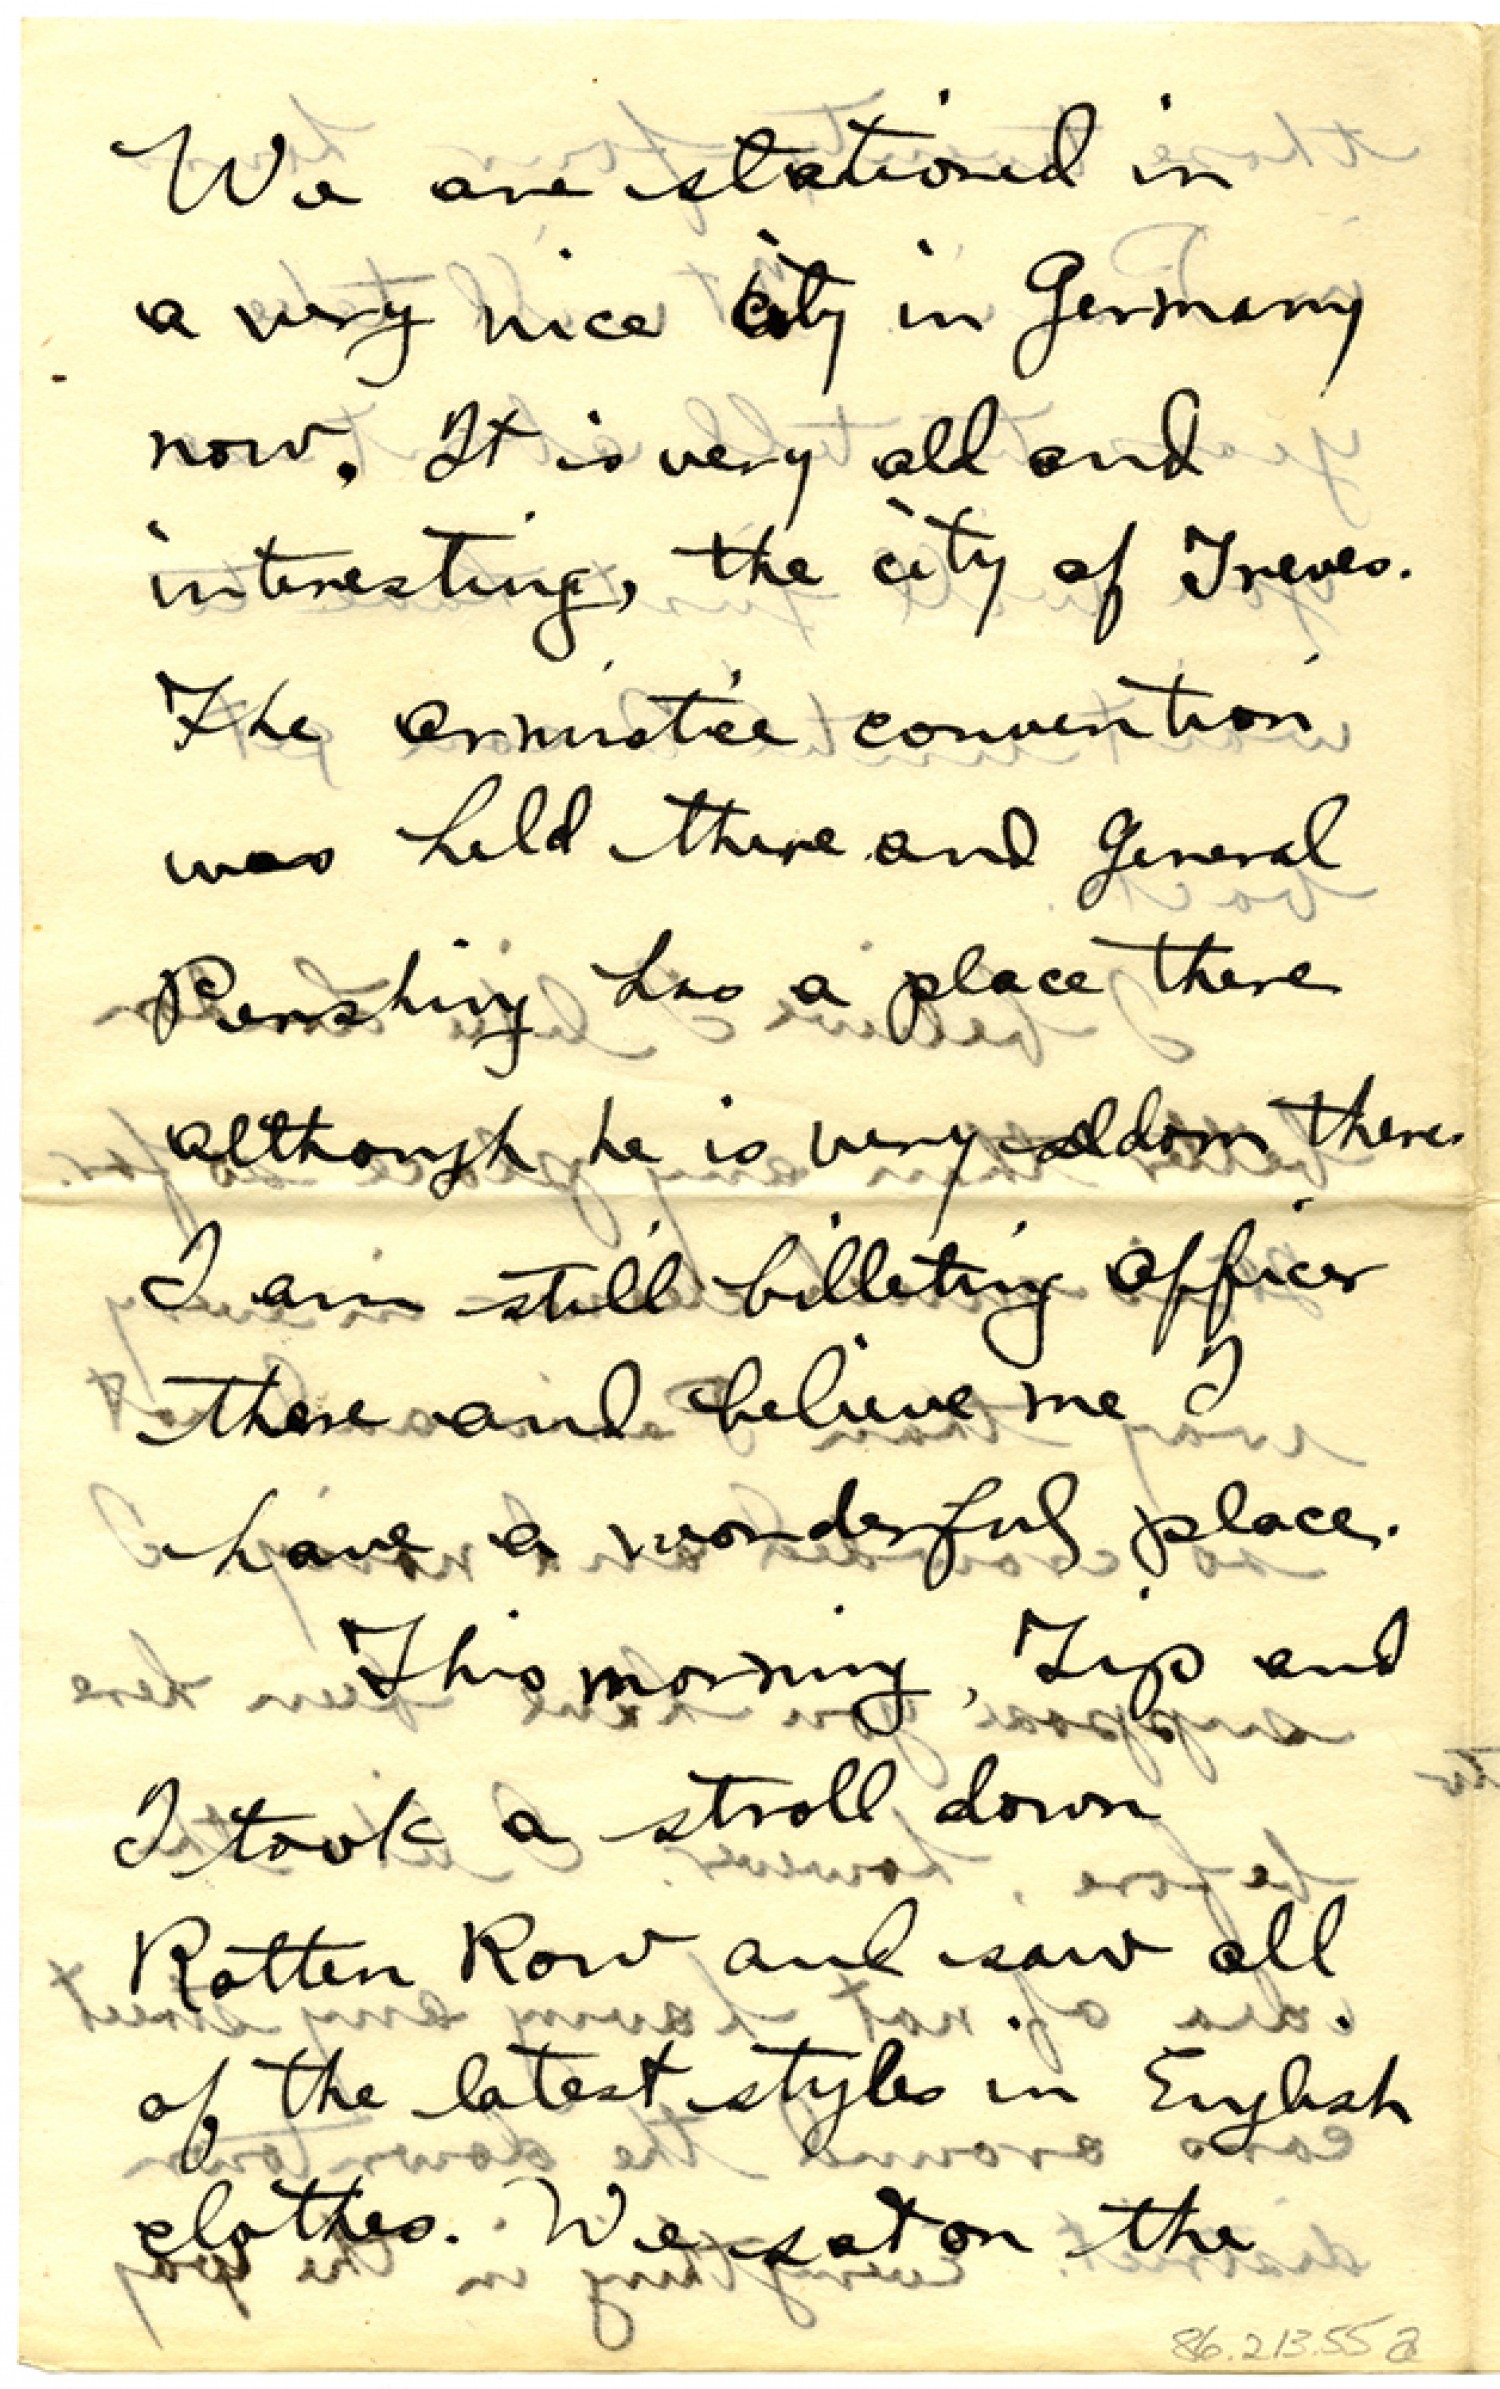 We are stationed in
a very nice city in Germany
now. It is very old and
interesting, the city of Treves.
The armistice convention
was held there and General
Pershing has a place there
although he is very seldom there.
I am still billeting officer
there and believe me I
have a wonderful place.
This morning, Tip and
I took a stroll down
Rotten Row and saw all
of the latest styles in English
clothes. We sat on the
86.213.55a